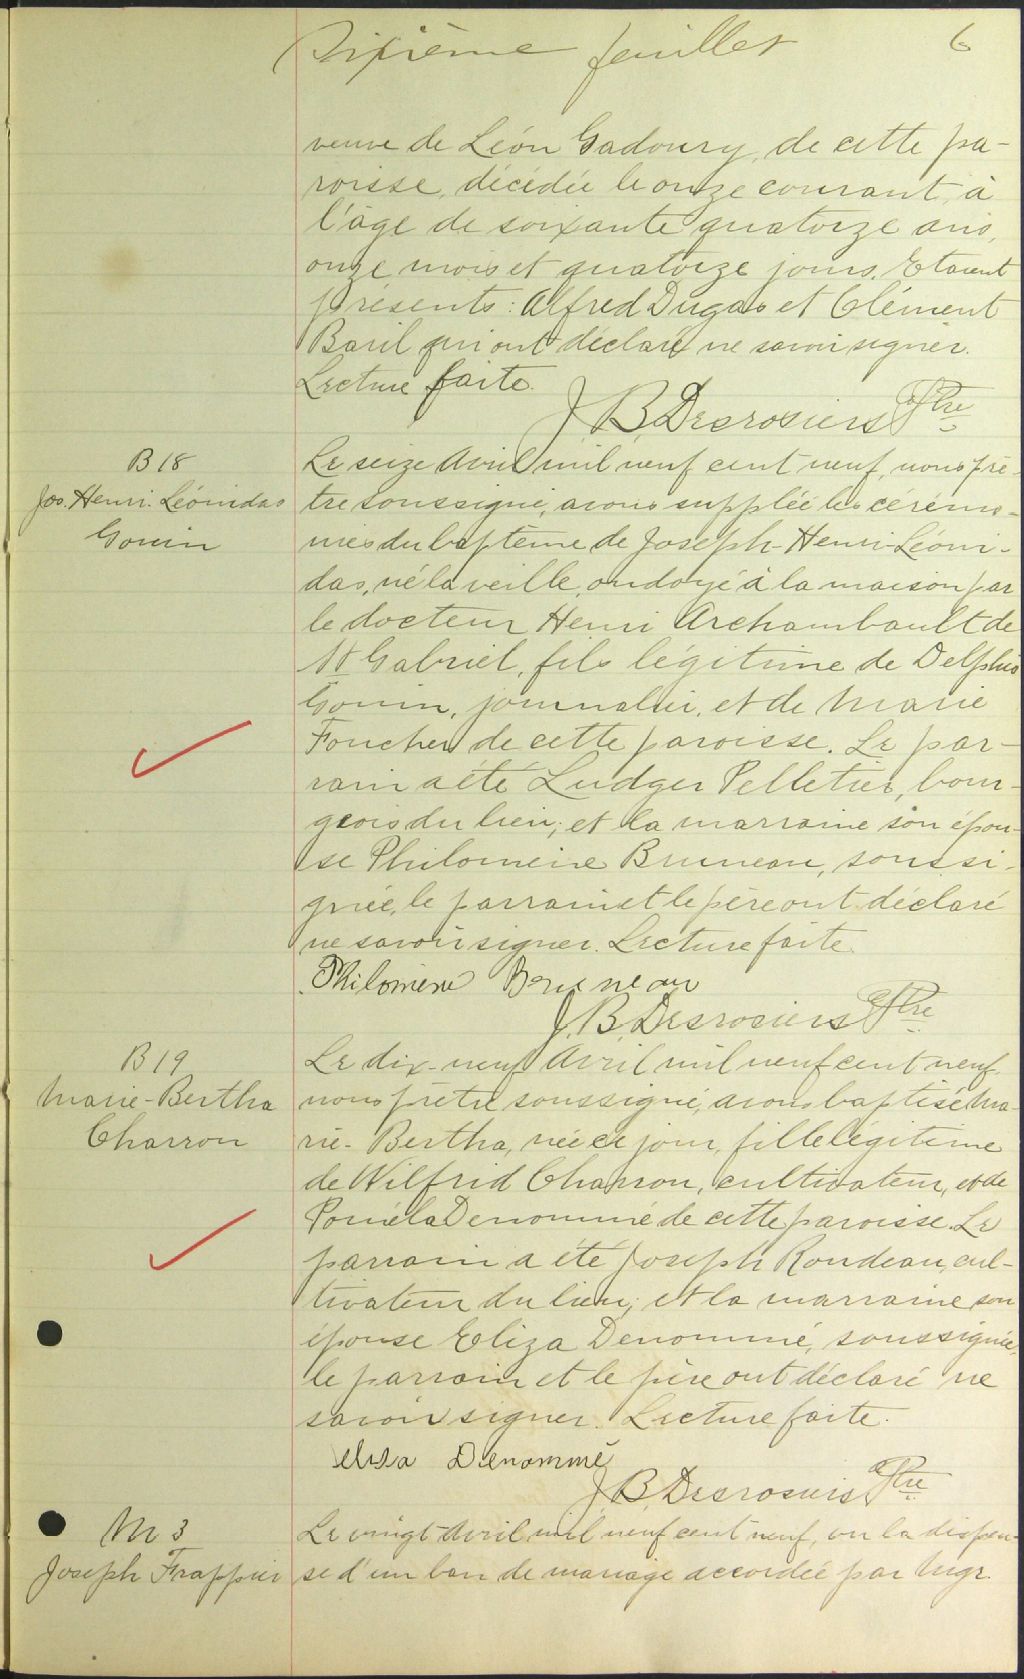 Sixième feuillet 6
veuve de Léon Gadoury, de cette pa-
roisse, décédée le onze courant, à
l'âge de soixante quatorze ans,
onze mois et quatorze jours. Etaient
présents: Alfred Dugas et Clément
Baril qui ont déclaré ne savoir signer.
Lecture faite.
J. B. Desrosiers Ptre
B 18
Jos. Henri. Léonidas
Gouin
Le seize Avril mil neuf cent neuf, nous prê-
tre soussigné, avons supplée les cérémo-
nies du baptême de Joseph-Henri-Léoni-
das, né la veille, ondoyé à la maison par
le docteur Henri Archambault de
St Gabriel, fils légitime de Delphis
Gouin, journalier, et de Marie
Foucher de cette paroisse. Le par-
rain a été Ludger Pelletier, bour-
geois du lieu; et la marraine son épou-
se Philomène Bruneau, soussi-
gnée, le parrain et le père ont déclaré
ne savoir signer. Lecture faite.
Philomène Bruneau
J. B. Desrosiers Ptre
B 19
Marie-Bertha
Charron
Le dix-neuf Avril mil neuf cent neuf,
nous prêtre soussigné, avons baptisé Ma-
rie-Bertha, née ce jour, fille légitime
de Wilfrid Charron, cultivateur, et de
Poméla Denommé de cette paroisse. Le
parrain a été Joseph Rondeau, cul-
tivateur du lieu; et la marraine son
épouse Eliza Denommé, soussignée,
le parrain et le père ont déclaré ne
savoir signer. Lecture faite.
elisa Dénommé
J. B. Desrosiers Ptre
M 3
Joseph Frappier
Le vingt Avril mil neuf cent neuf, vu la dispen-
se d'un ban de mariage accordée par Mgr.